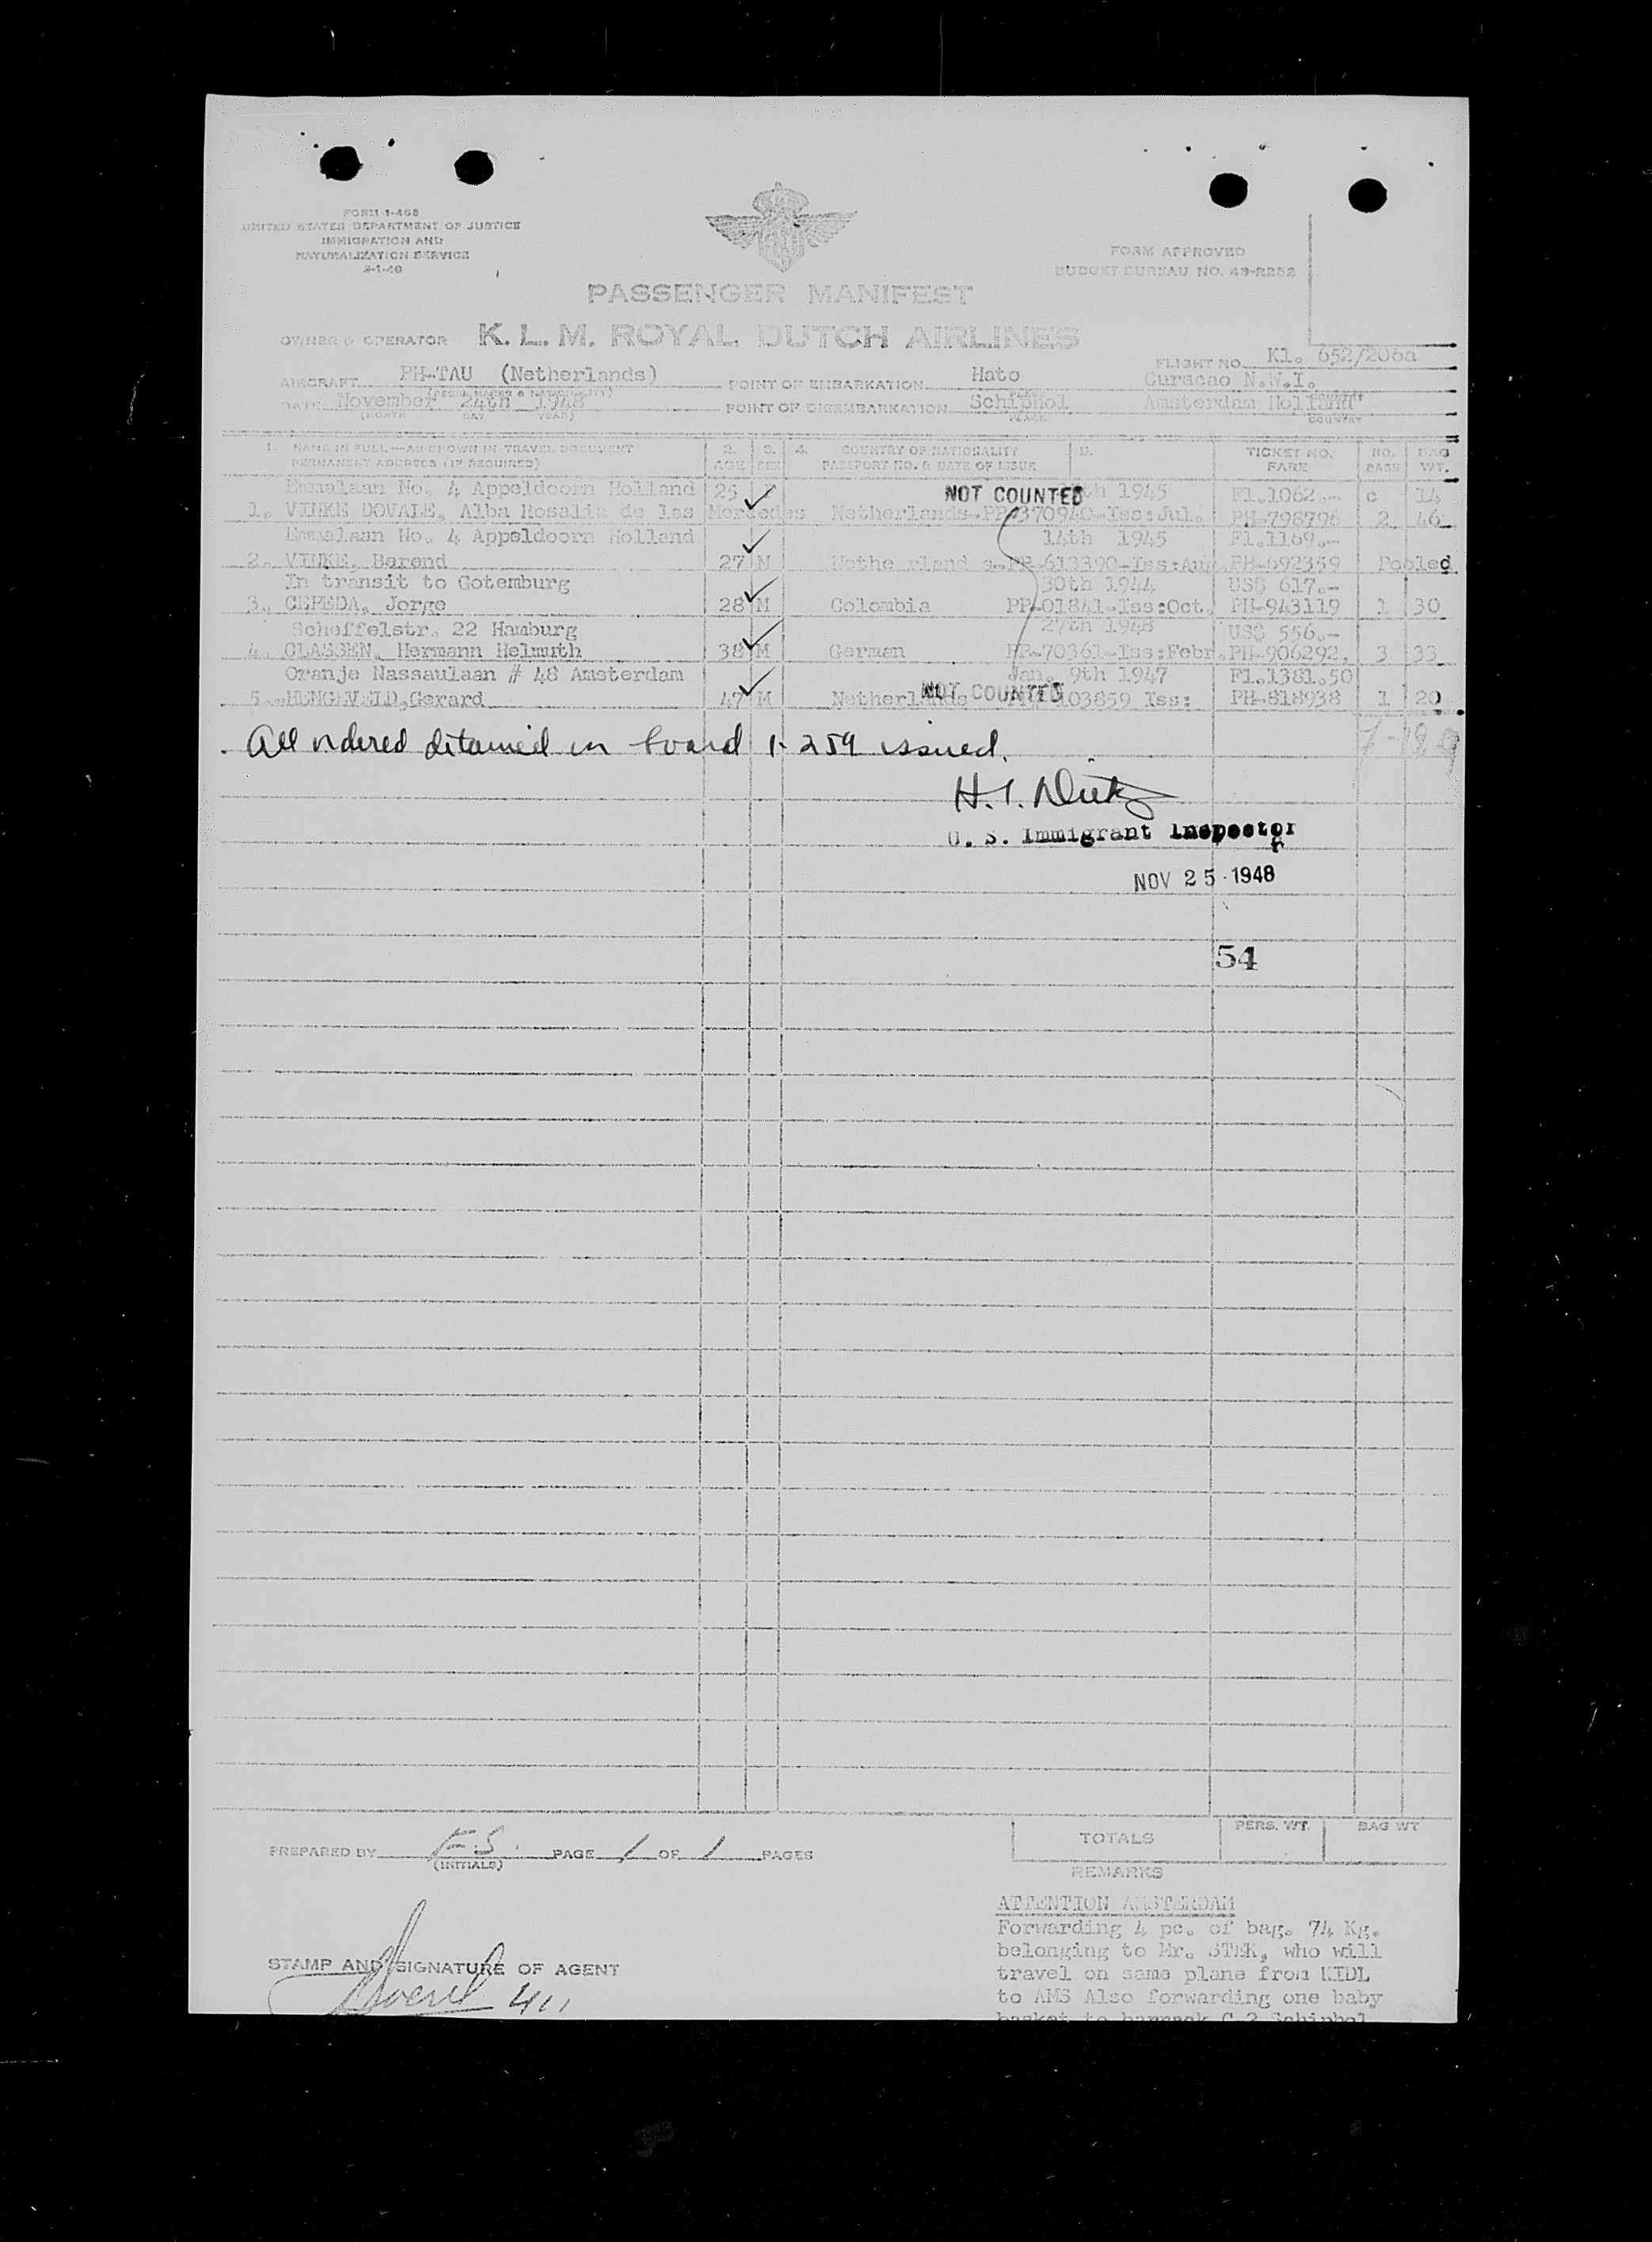 FORM I-466
UNITED STATES DEPARTMENT OF JUSTICE
IMMIGRATION AND
NATURALIZATION SERVICE
FORM APPROVED
BUDGET BUREAU NO. 43-R252
PASSENGER MANIFEST
OWNER & OPERATOR K. L. M. ROYAL DUTCH AIRLINES
FLIGHT NO. Kl. 652/206a
AIRCRAFT PH-TAU (Netherlands) POINT OF EMBARKATION Hato Curacao N.W.I.
DATE November 24th 1948 POINT OF DISEMBARKATION Schiphol Amsterdam Holland
(MONTH DAY YEAR) PLACE COUNTRY
1. NAME IN FULL—AS SHOWN IN TRAVEL DOCUMENT 2. 3. 4. COUNTRY OF NATIONALITY 5. TICKET NO. NO. BAG
PERMANENT ADDRESS (IF REQUIRED) AGE SEX PASSPORT NO. & DATE OF ISSUE FARE BAGS WT.
Emmalaan No. 4 Appeldoorn Holland 25 NOT COUNTED 1945 Fl.1062.- c 14
1. VINKE DOVALE, Alba Rosalia de las Mercedes Netherlands-PP-370940-Iss:Jul. PH-798796 2 46
Emmalaan No. 4 Appeldoorn Holland 14th 1945 Fl.1169.-
2. VINKE, Barend 27 M Netherlands-PP-613390-Iss:Aug. PH-692359 Pooled
In transit to Gotemburg 30th 1944 US$ 617.-
3. CEPEDA, Jorge 28 M Colombia PP-01841-Iss:Oct. PH-943119 1 30
Scheffelstr. 22 Hamburg 27th 1948 US$ 556.-
4. CLASSEN, Hermann Helmuth 38 M German PP-70361-Iss:Febr. PH-906292. 3 33
Oranje Nassaulaan # 48 Amsterdam Jan. 9th 1947 Fl.1381.50
5. HENGEVELD, Gerard 47 M Netherlands NOT COUNTED 103859 Iss: PH-818938 1 20
All ordered detained on board I-259 issued.
H. I.
U. S. Immigrant Inspector
NOV 25 1948
54
TOTALS PERS. WT. BAG WT
PREPARED BY F.S. PAGE 1 OF 1 PAGES
(INITIALS)
REMARKS
ATTENTION AMSTERDAM
Forwarding 4 pc. of bag. 74 Kg.
belonging to Mr. STEK, who will
travel on same plane from KIDL
to AMS Also forwarding one baby
basket to barrack C 2 Schiphol
STAMP AND SIGNATURE OF AGENT